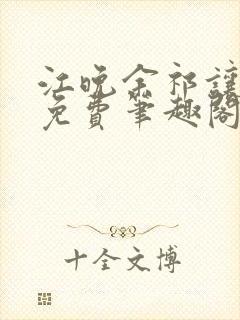 江晚余祁让
免费笔趣阁
十全文博